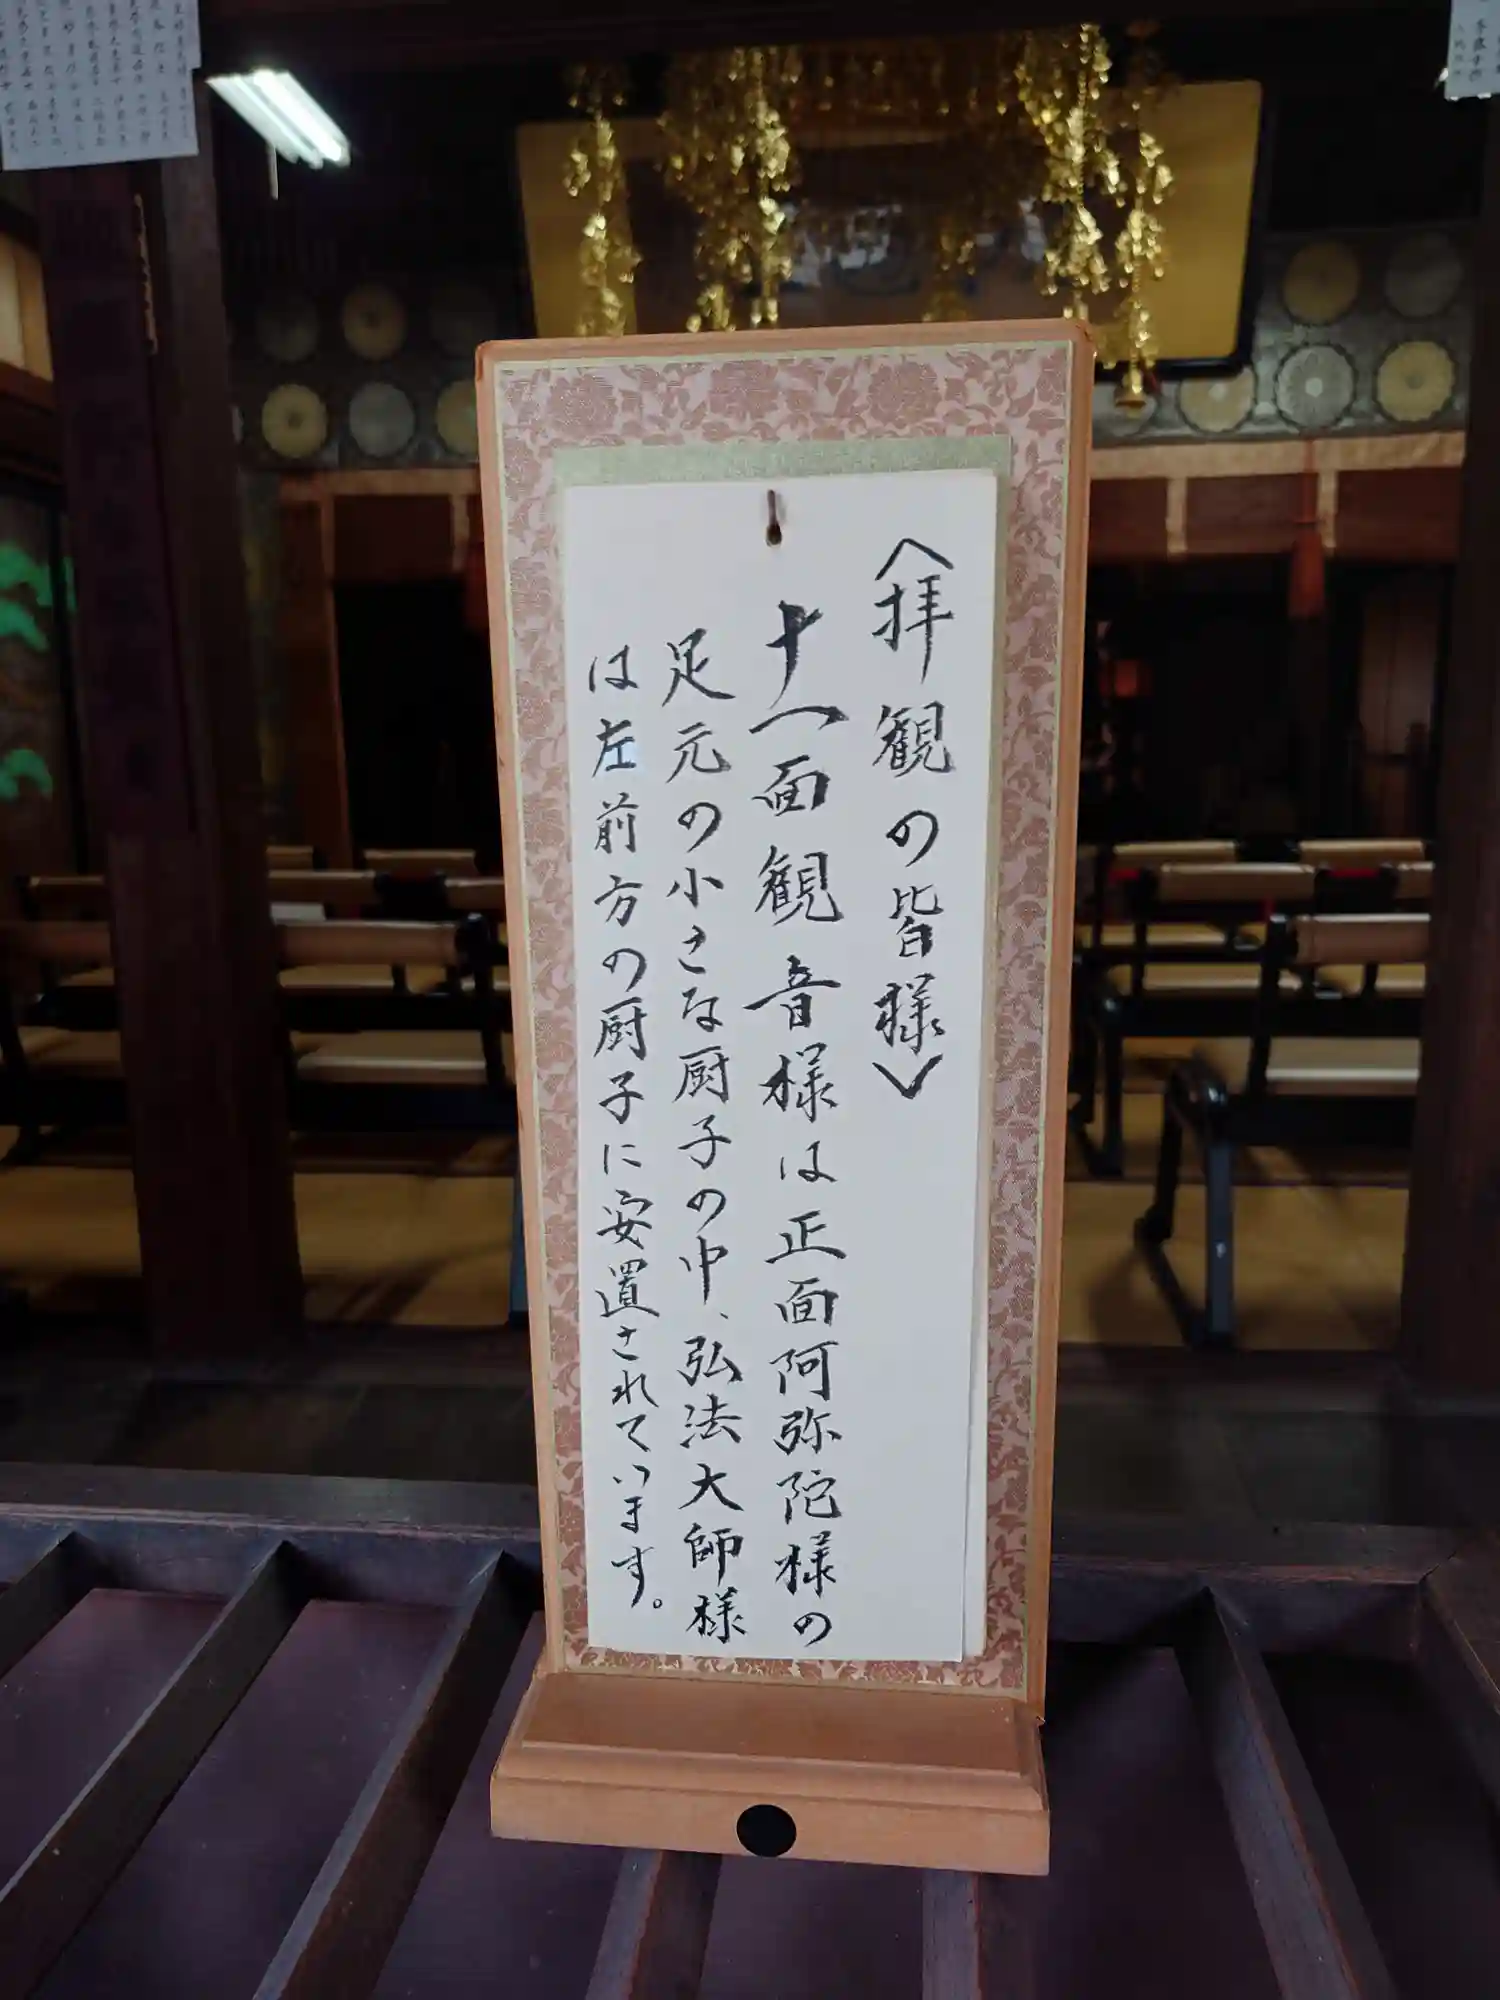 〈拝観の皆様〉
十一面観音様は正面阿弥陀様の
足元の小さな厨子の中、弘法大師様
は左前方の厨子に安置されています。